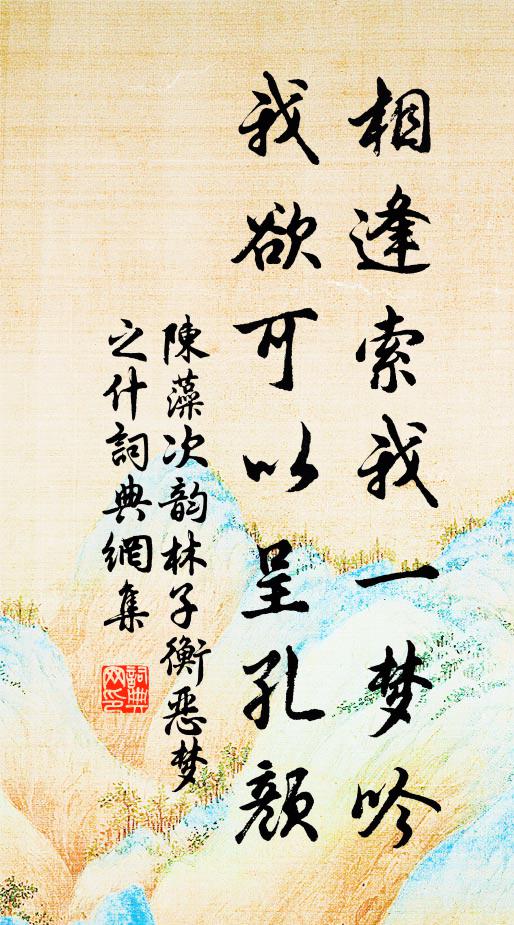 相逢索我一梦吟
我欲可以呈孔颜
陳藻次韵林子衡恶梦
之什詞典網集
詞典
网印